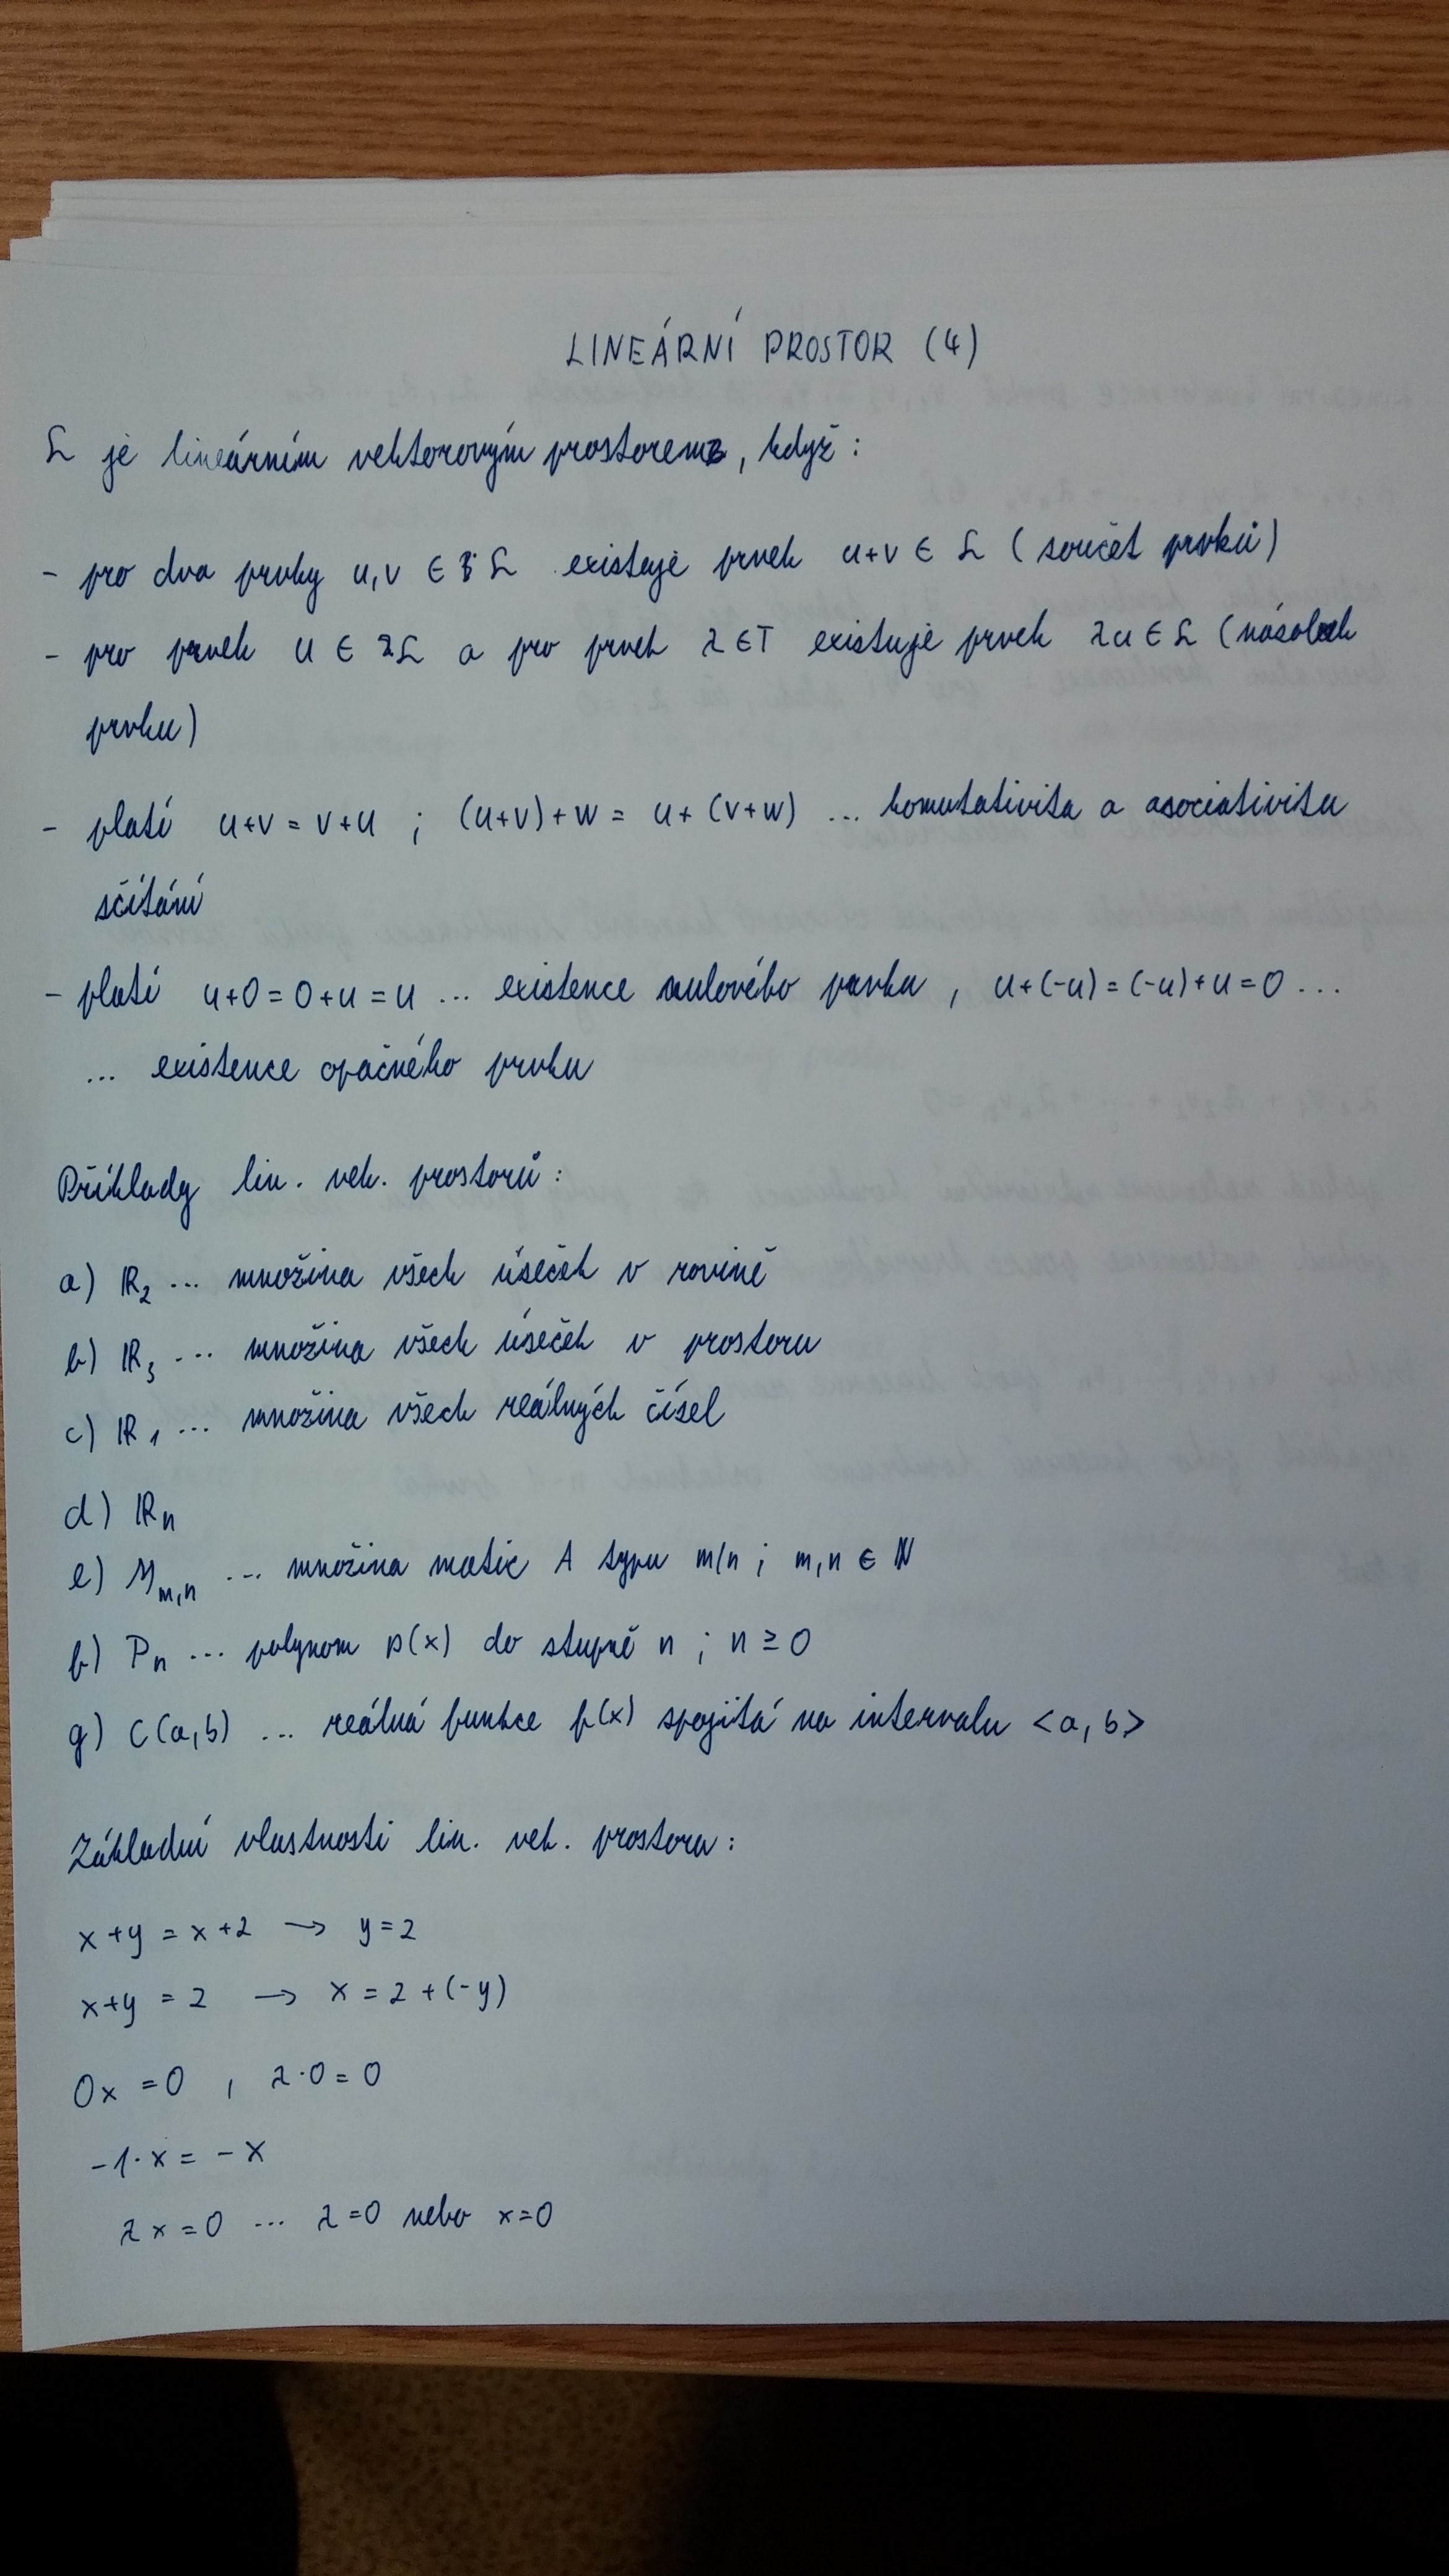 LINEÁRNÍ PROSTOR (4)
L je lineárním vektorovým prostorem, když:
- pro dva prvky u,v ∈ L existuje prvek u+v ∈ L (součet prvků)
- pro prvek u ∈ L a pro prvek λ ∈ T existuje prvek λu ∈ L (násobek
prvku)
- platí u+v = v+u ; (u+v)+w = u+(v+w) ... komutativita a asociativita
sčítání
- platí u+0=0+u=u ... existence nulového prvku, u+(-u)=(-u)+u=0 ...
... existence opačného prvku
Příklady lin. vek. prostorů:
a) ℝ₂ ... množina všech úseček v rovině
b) ℝ₃ ... množina všech úseček v prostoru
c) ℝ₁ ... množina všech reálných čísel
d) ℝₙ
e) Mm,n ... množina matic A typu m/n ; m,n ∈ N
f) Pₙ ... polynom p(x) do stupně n ; n ≥ 0
g) C(a,b) ... reálná funkce f(x) spojitá na intervalu <a,b>
Základní vlastnosti lin. vek. prostoru:
x+y = x+z → y=z
x+y = z → x = z+(-y)
0x =0 , λ·0=0
-1·x = -x
λx=0 ... λ=0 nebo x=0